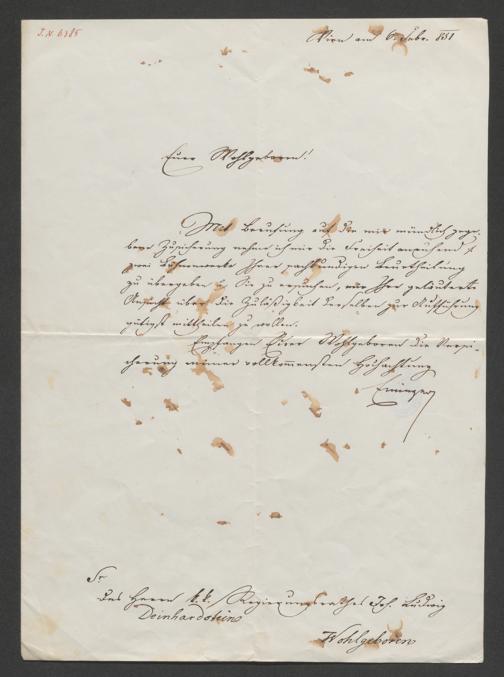 J.N. 6385
Wien am 6. Febr. 851
Euer Wohlgeboren!
Mit Berufung auf die mir mündlich gege-
bene Zusicherung nehme ich mir die Freiheit anruhend
zwei Bühnenwerke Ihrer sachkundigen Beurtheilung
zu übergeben u. Sie zu ersuchen, mir Ihre geläuterte
Ansicht über die Zuläßigkeit derselben zur Aufführung
gütigst mittheilen zu wollen.
Empfangen Euer Wohlgeboren die Versi-
cherung meiner vollkommensten Hochachtung
Sr
des Herrn k.k. Regierungsrathes Joh. Ludwig
Deinhardstein
Wohlgeboren